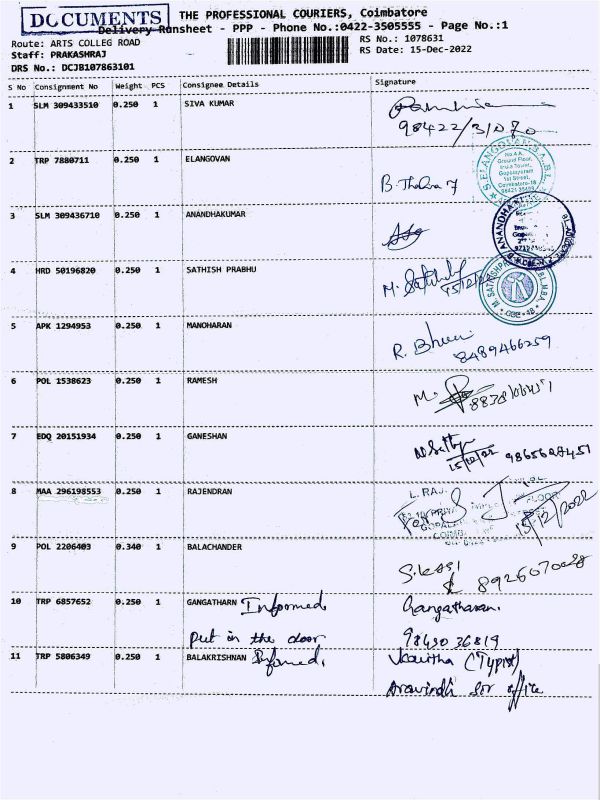 DOCUMENTS
THE PROFESSIONAL COURIERS, Coimbatore
Delivery Runsheet - PPP - Phone No.:0422-3505555 - Page No.:1
Route: ARTS COLLEG ROAD
RS No.: 1078631
Staff: PRAKASHRAJ
RS Date: 15-Dec-2022
DRS No.: DCJB107863101
S No Consignment No Weight PCS Consignee Details Signature
1 SLM 309433510 0.250 1 SIVA KUMAR
98422/31070
2 TRP 7880711 0.250 1 ELANGOVAN
No.4 A,
Ground Floor,
1st Street,
Coimbatore-18
3 SLM 309436710 0.250 1 ANANDHAKUMAR
4 HRD 50196820 0.250 1 SATHISH PRABHU
5 APK 1294953 0.250 1 MANOHARAN
8489466259
6 POL 1538623 0.250 1 RAMESH
7 EDQ 20151934 0.250 1 GANESHAN
15/12/22
8 MAA 296198553 0.250 1 RAJENDRAN
L. RAJ
FLOOR
15/12/2022
9 POL 2206403 0.340 1 BALACHANDER
10 TRP 6857652 0.250 1 GANGATHARN Informed
Gangatharan.
put in the door
98430 36819
11 TRP 5806349 0.250 1 BALAKRISHNAN Informed.
(Typist)
for office